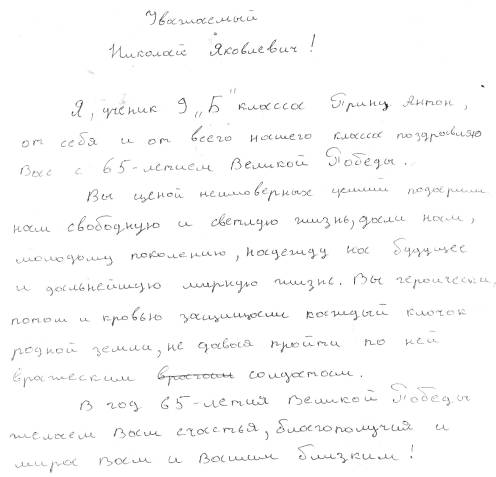 Уважаемый
Николай Яковлевич!
Я, ученик 9 „Б" класса Принц Антон,
от себя и от всего нашего класса поздравляю
Вас с 65-летием Великой Победы.
Вы ценой неимоверных усилий подарили
нам свободную и светлую жизнь, дали нам,
молодому поколению, надежду на будущее
и дальнейшую мирную жизнь. Вы героически,
потом и кровью защищали каждый клочок
родной земли, не давая пройти по ней
вражеским врагам солдатам.
В год 65-летия Великой Победы
желаем Вам счастья, благополучия и
мира Вам и Вашим близким!